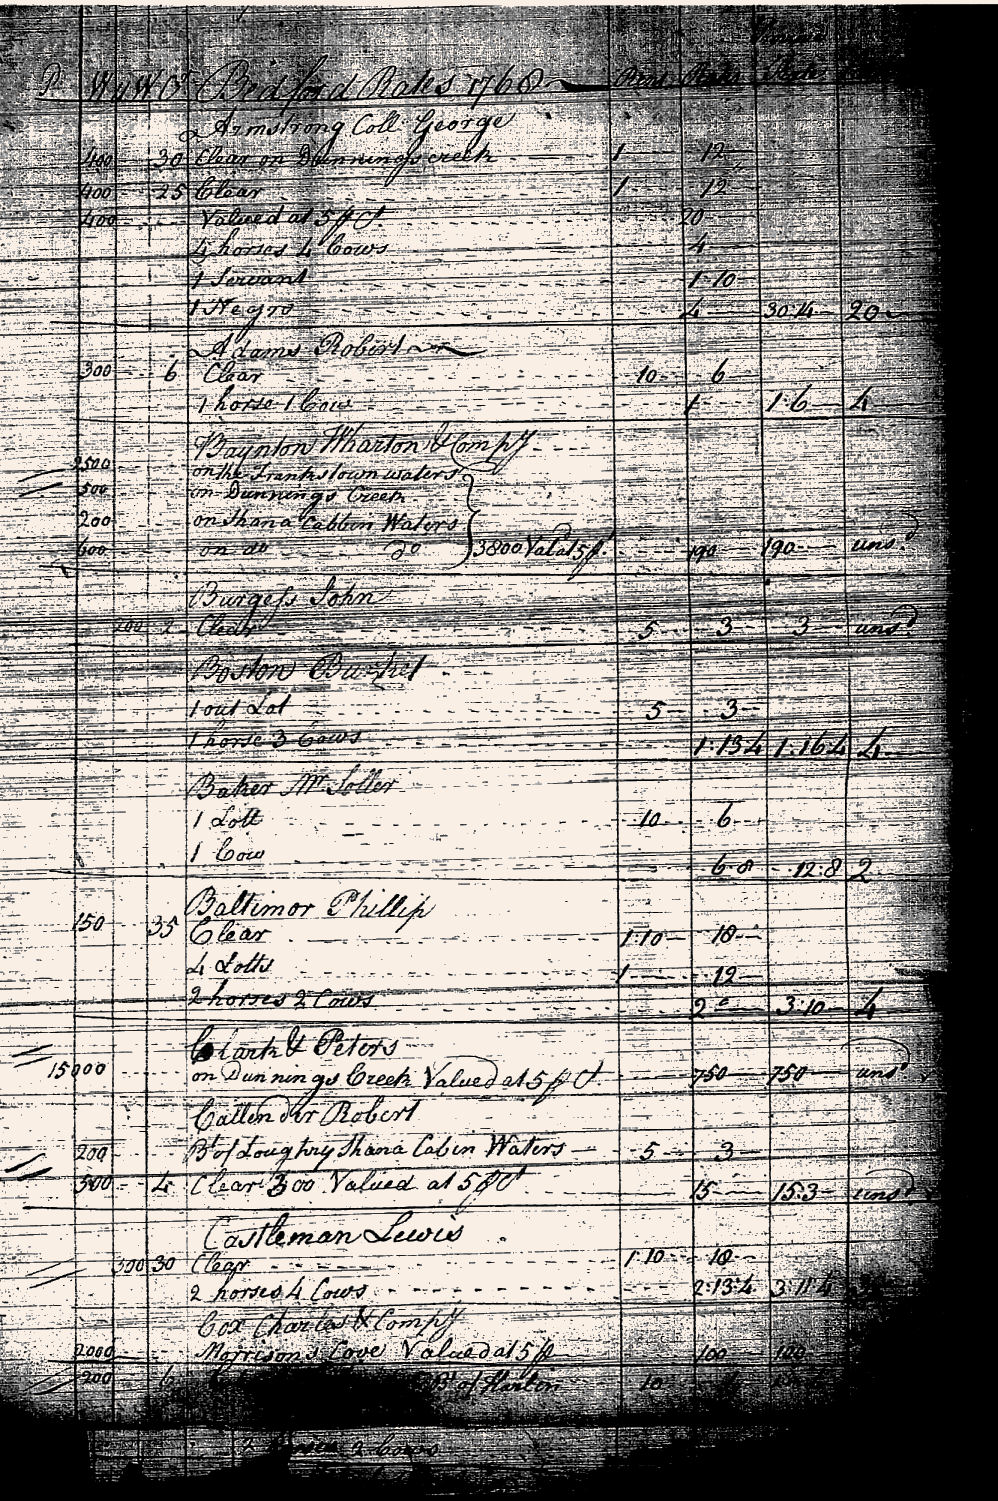 P. W. W Cd Bedford Rates 1768 Rent Rates
Armstrong Coll. George
400 30 Clear on Dunnings creek 1 12
400 25 Clear 1 12
400 Valued at 5 ꝑ Ct. 20
4 horses 4 Cows 4
1 Servant 1-10
1 Negro 4 30:14 20
Adams Robert
300 6 Clear 10 6
1 horse 1 Cow 1 1:6 4
Baynton Wharton & Compy
2500 on the Frankstown waters
500 on Dunnings Creek
200 on Shana Cabbin Waters
600 on do do 3800 Vald at 5 ꝑ 190 190 unsd
Burgess John
100 2 Clear 5 3 3 unsd
Boston Burket
1 out Lot 5 3
1 horse 3 Cows 1:13:4 1:16:4 4
Baker Mr. Soller
1 Lott 10 6
1 Cow 6-8 12:8 2
Baltimor Phillip
150 35 Clear 1:10 18
4 Lotts 1 12
2 horses 2 Cows 2 3:10 4
Clark & Peters
15000 on Dunnings Creek Valued at 5 ꝑ Ct 750 750 unsd
Callender Robert
200 Bt of Loughry Shana Cabin Waters 5 3
300 4 Clear 300 Valued at 5 ꝑ Ct 15 15:3 unsd
Castleman Lewis
300 30 Clear 1:10 18
2 horses 4 Cows 2:13:4 3:11:4
Cox Charles & Compy
2000 Morrisons Cove Valued at 5 ꝑ 100 100
200 6 Bt of 10
2 horses 2 Cows